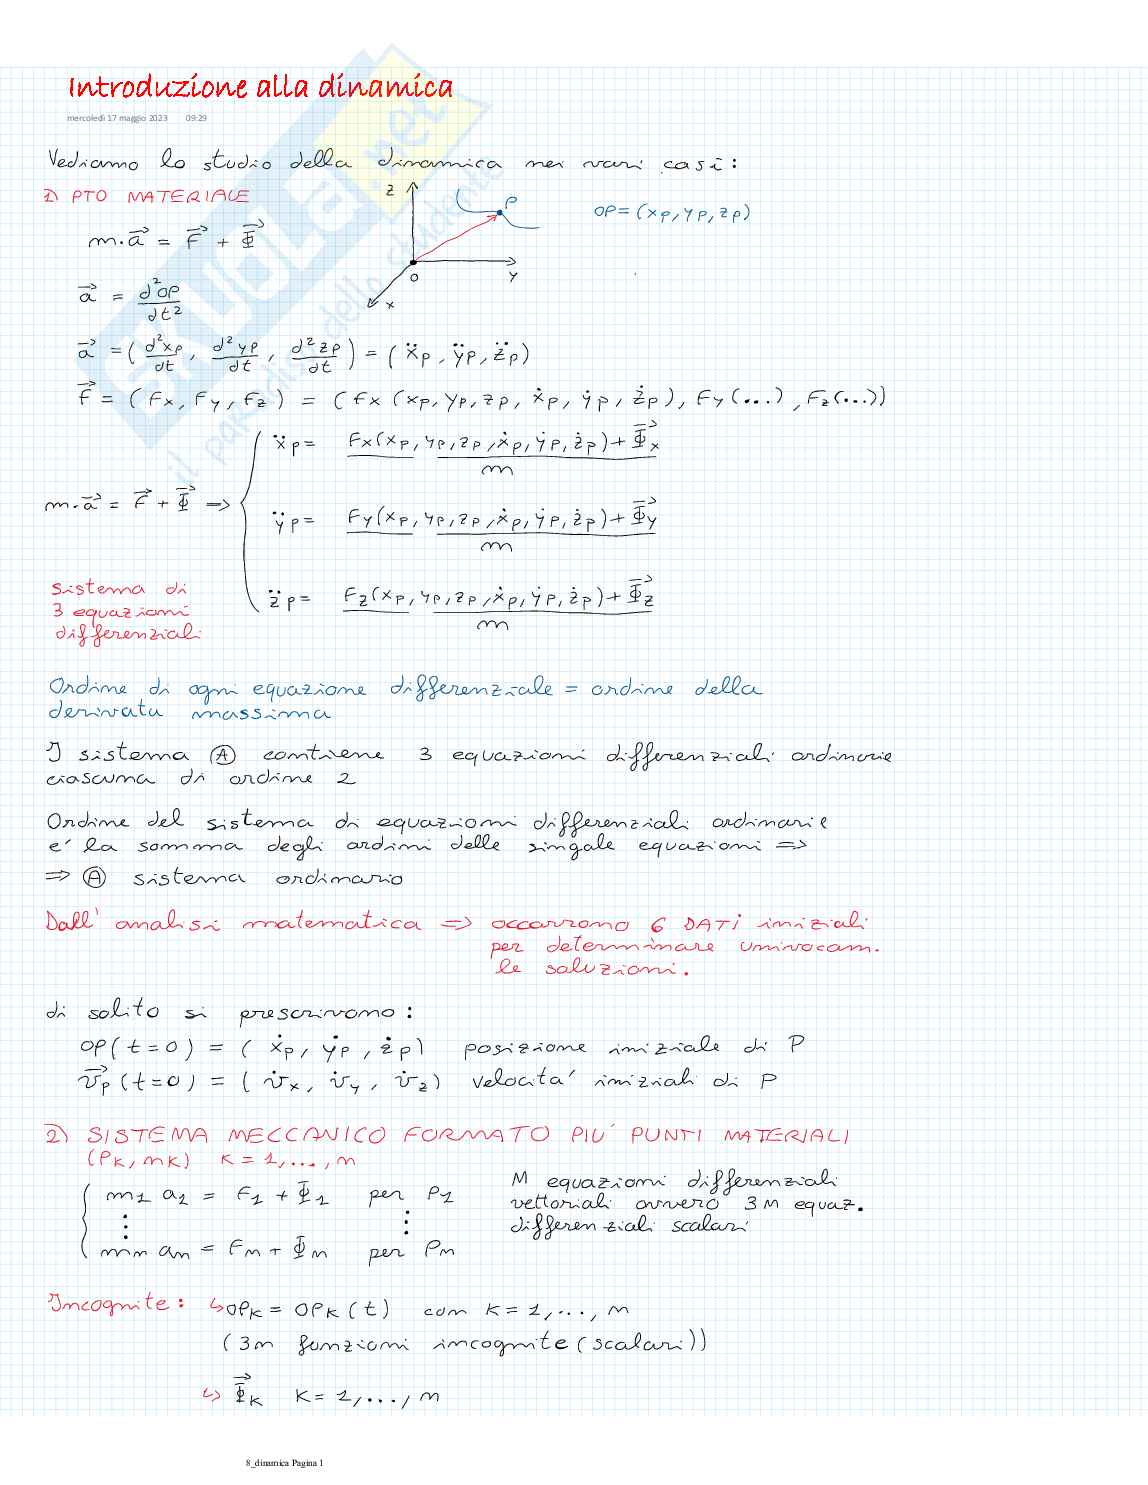 Introduzione alla dinamica
mercoledì 17 maggio 2023 09:29
Vediamo lo studio della dinamica nei vari casi:
1) PTO MATERIALE
z
P
OP=(xp,yp,zp)
m·a⃗ = F⃗ + Φ⃗
O
y
x
a⃗ = d²OP/dt²
a⃗ = (d²xp/dt, d²yp/dt, d²zp/dt) = (ẍp, ÿp, z̈p)
F⃗ = (Fx, Fy, Fz) = (Fx (xp, yp, zp, ẋp, ẏp, żp), Fy(...), Fz(...))
ẍp = (Fx(xp, yp, zp, ẋp, ẏp, żp) + Φ⃗x)/m
m·a⃗ = F⃗ + Φ⃗ ⇒
ÿp = (Fy(xp, yp, zp, ẋp, ẏp, żp) + Φ⃗y)/m
z̈p = (Fz(xp, yp, zp, ẋp, ẏp, żp) + Φ⃗z)/m
sistema di
3 equazioni
differenziali
Ordine di ogni equazione differenziale = ordine della
derivata massima
I sistema Ⓐ contiene 3 equazioni differenziali ordinarie
ciascuna di ordine 2
Ordine del sistema di equazioni differenziali ordinarie
e' la somma degli ordini delle singale equazioni ⇒
⇒ Ⓐ sistema ordinario
Dall' analisi matematica ⇒ occorrono 6 DATI iniziali
per determinare univocam.
le soluzioni.
di solito si prescrivono:
OP(t=0) = (ẋp, ẏp, żp) posizione iniziale di P
v⃗p(t=0) = (v̇x, v̇y, v̇z) velocita' iniziali di P
2) SISTEMA MECCANICO FORMATO PIU' PUNTI MATERIALI
(Pk, mk) k = 1,..., n
m1 a1 = F1 + Φ1 per P1
⋮ ⋮
mn an = Fn + Φn per Pn
N equazioni differenziali
vettoriali ovvero 3N equaz.
differenziali scalari
Incognite: ↳OPk = OPk(t) con k = 1,..., n
(3n funzioni incognite (scalari))
↳ Φ⃗k k = 1,..., n
8_dinamica Pagina 1
SKUOLA.net
il paradiso dello studente